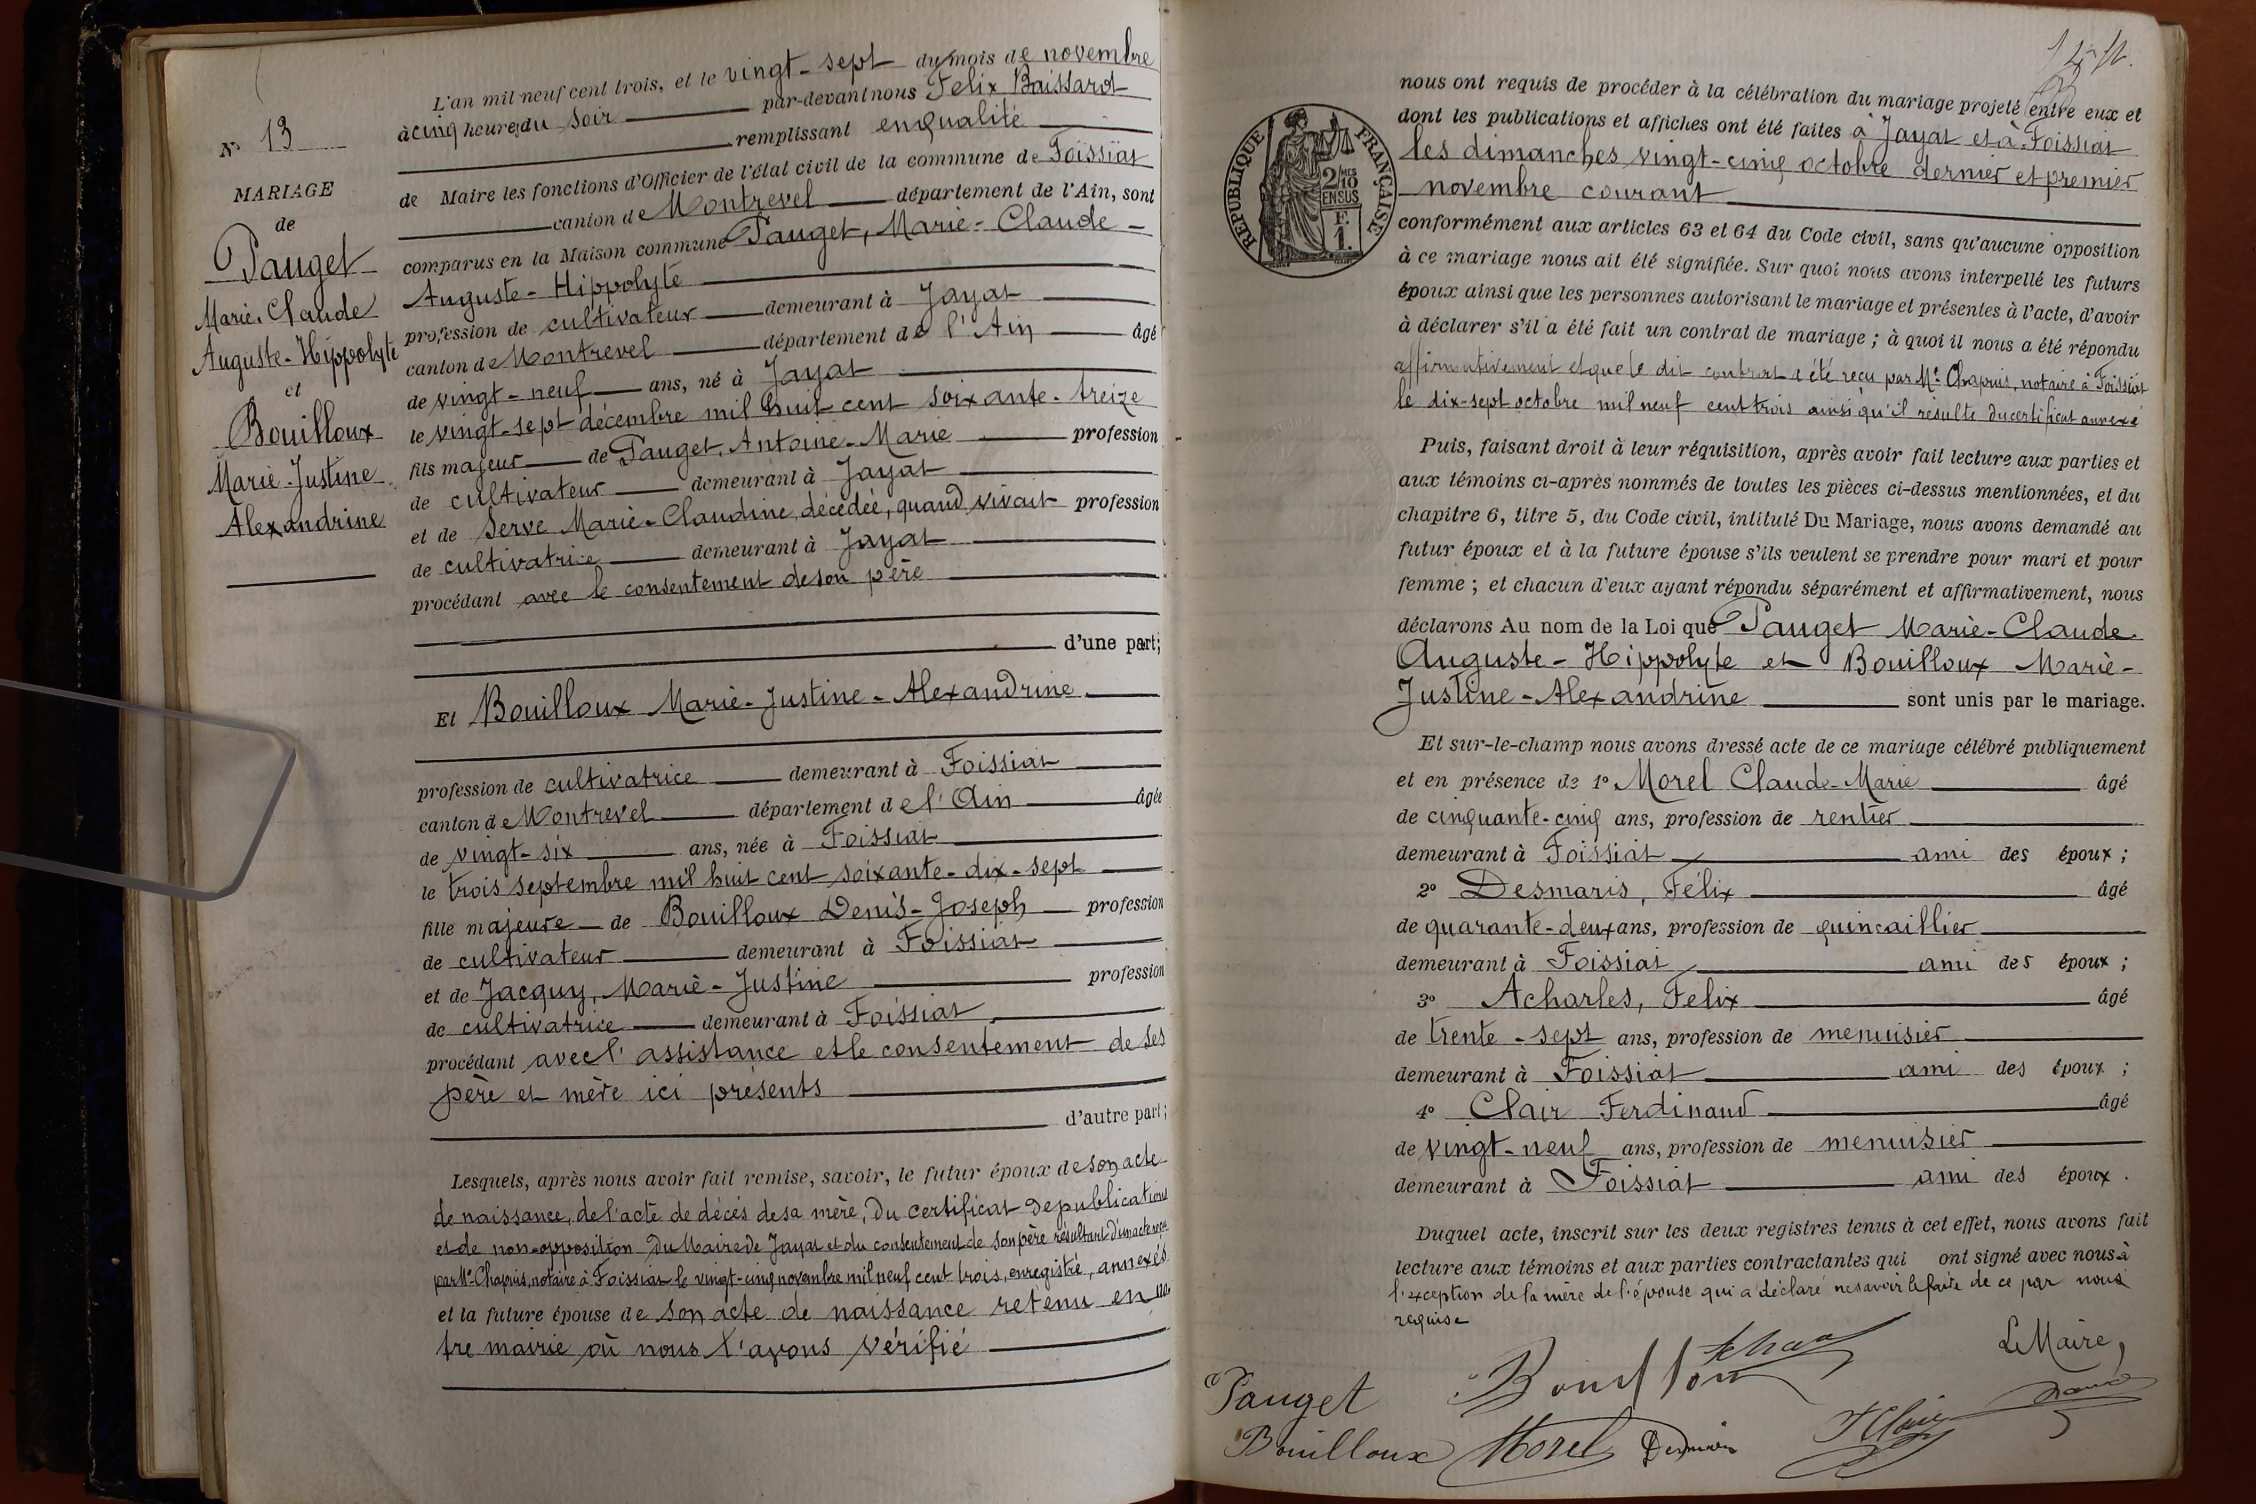 L'an mil neuf cent trois, et le vingt-sept du mois de novembre
à cinq heures du soir par-devant nous Felix Baissard
remplissant en qualité
de Maire les fonctions d'Officier de l'état civil de la commune de Foissiat
canton de Montrevel département de l'Ain, sont
comparus en la Maison commune Pauget, Marie-Claude-
Auguste-Hippolyte
profession de cultivateur demeurant à Jayat
canton de Montrevel département de l'Ain âgé
de vingt-neuf ans, né à Jayat
le vingt-sept décembre mil huit cent soixante-treize
fils majeur de Pauget, Antoine-Marie profession
de cultivateur demeurant à Jayat
et de Serve Marie-Claudine, décédée, quand vivait profession
de cultivatrice demeurant à Jayat
procédant avec le consentement de son père
d'une part;
Et Bouilloux Marie-Justine-Alexandrine
profession de cultivatrice demeurant à Foissiat
canton de Montrevel département de l'Ain âgée
de vingt-six ans, née à Foissiat
le trois septembre mil huit cent soixante-dix-sept
fille majeure de Bouilloux Denis-Joseph profession
de cultivateur demeurant à Foissiat
et de Jacquy, Marie-Justine profession
de cultivatrice demeurant à Foissiat
procédant avec l'assistance et le consentement de ses
père et mère ici présents
d'autre part;
Lesquels, après nous avoir fait remise, savoir, le futur époux de son acte
de naissance, de l'acte de décés de sa mère, du certificat de publication
et de non-opposition du Maire de Jayat et du consentement de son père résultant d'un acte reçu
par Me Chapuis, notaire à Foissiat le vingt-cinq novembre mil neuf cent trois, enregistré, annexés
et la future épouse de son acte de naissance retenu en no
tre mairie où nous l'avons vérifié
No 13
MARIAGE
de
Pauget
Marie-Claude
Auguste-Hippolyte
et
Bouilloux
Marie-Justine
Alexandrine
nous ont requis de procéder à la célébration du mariage projeté entre eux et
dont les publications et affiches ont été faites à Jayat et à Foissiat
les dimanches vingt-cinq octobre dernier et premier
novembre courant
RÉPUBLIQUE FRANÇAISE
2/10 MES
EN SUS
F.
1.
conformément aux articles 63 et 64 du Code civil, sans qu'aucune opposition
à ce mariage nous ait été signifiée. Sur quoi nous avons interpellé les futurs
époux ainsi que les personnes autorisant le mariage et présentes à l'acte, d'avoir
à déclarer s'il a été fait un contrat de mariage ; à quoi il nous a été répondu
affirmativement et que le dit contrat a été reçu par Me Chapuis, notaire à Foissiat
le dix-sept octobre mil neuf cent trois ainsi qu'il résulte du certificat annexé
Puis, faisant droit à leur réquisition, après avoir fait lecture aux parties et
aux témoins ci-après nommés de toutes les pièces ci-dessus mentionnées, et du
chapitre 6, titre 5, du Code civil, intitulé Du Mariage, nous avons demandé au
futur époux et à la future épouse s'ils veulent se prendre pour mari et pour
femme ; et chacun d'eux ayant répondu séparément et affirmativement, nous
déclarons Au nom de la Loi que Pauget Marie-Claude-
Auguste-Hippolyte et Bouilloux Marie-
Justine-Alexandrine sont unis par le mariage.
Et sur-le-champ nous avons dressé acte de ce mariage célébré publiquement
et en présence de 1o Morel Claude-Marie âgé
de cinquante-cinq ans, profession de rentier
demeurant à Foissiat ami des époux ;
2o Desmaris, Félix âgé
de quarante-deux ans, profession de quincaillier
demeurant à Foissiat ami des époux ;
3o Acharles, Felix âgé
de trente-sept ans, profession de menuisier
demeurant à Foissiat ami des époux ;
4o Clair Ferdinand âgé
de vingt-neuf ans, profession de menuisier
demeurant à Foissiat ami des époux.
Duquel acte, inscrit sur les deux registres tenus à cet effet, nous avons fait
lecture aux témoins et aux parties contractantes qui ont signé avec nous à
l'exception de la mère de l'épouse qui a déclaré ne savoir le faire de ce par nous
requise
Le Maire,
Pauget
Bouilloux Morel